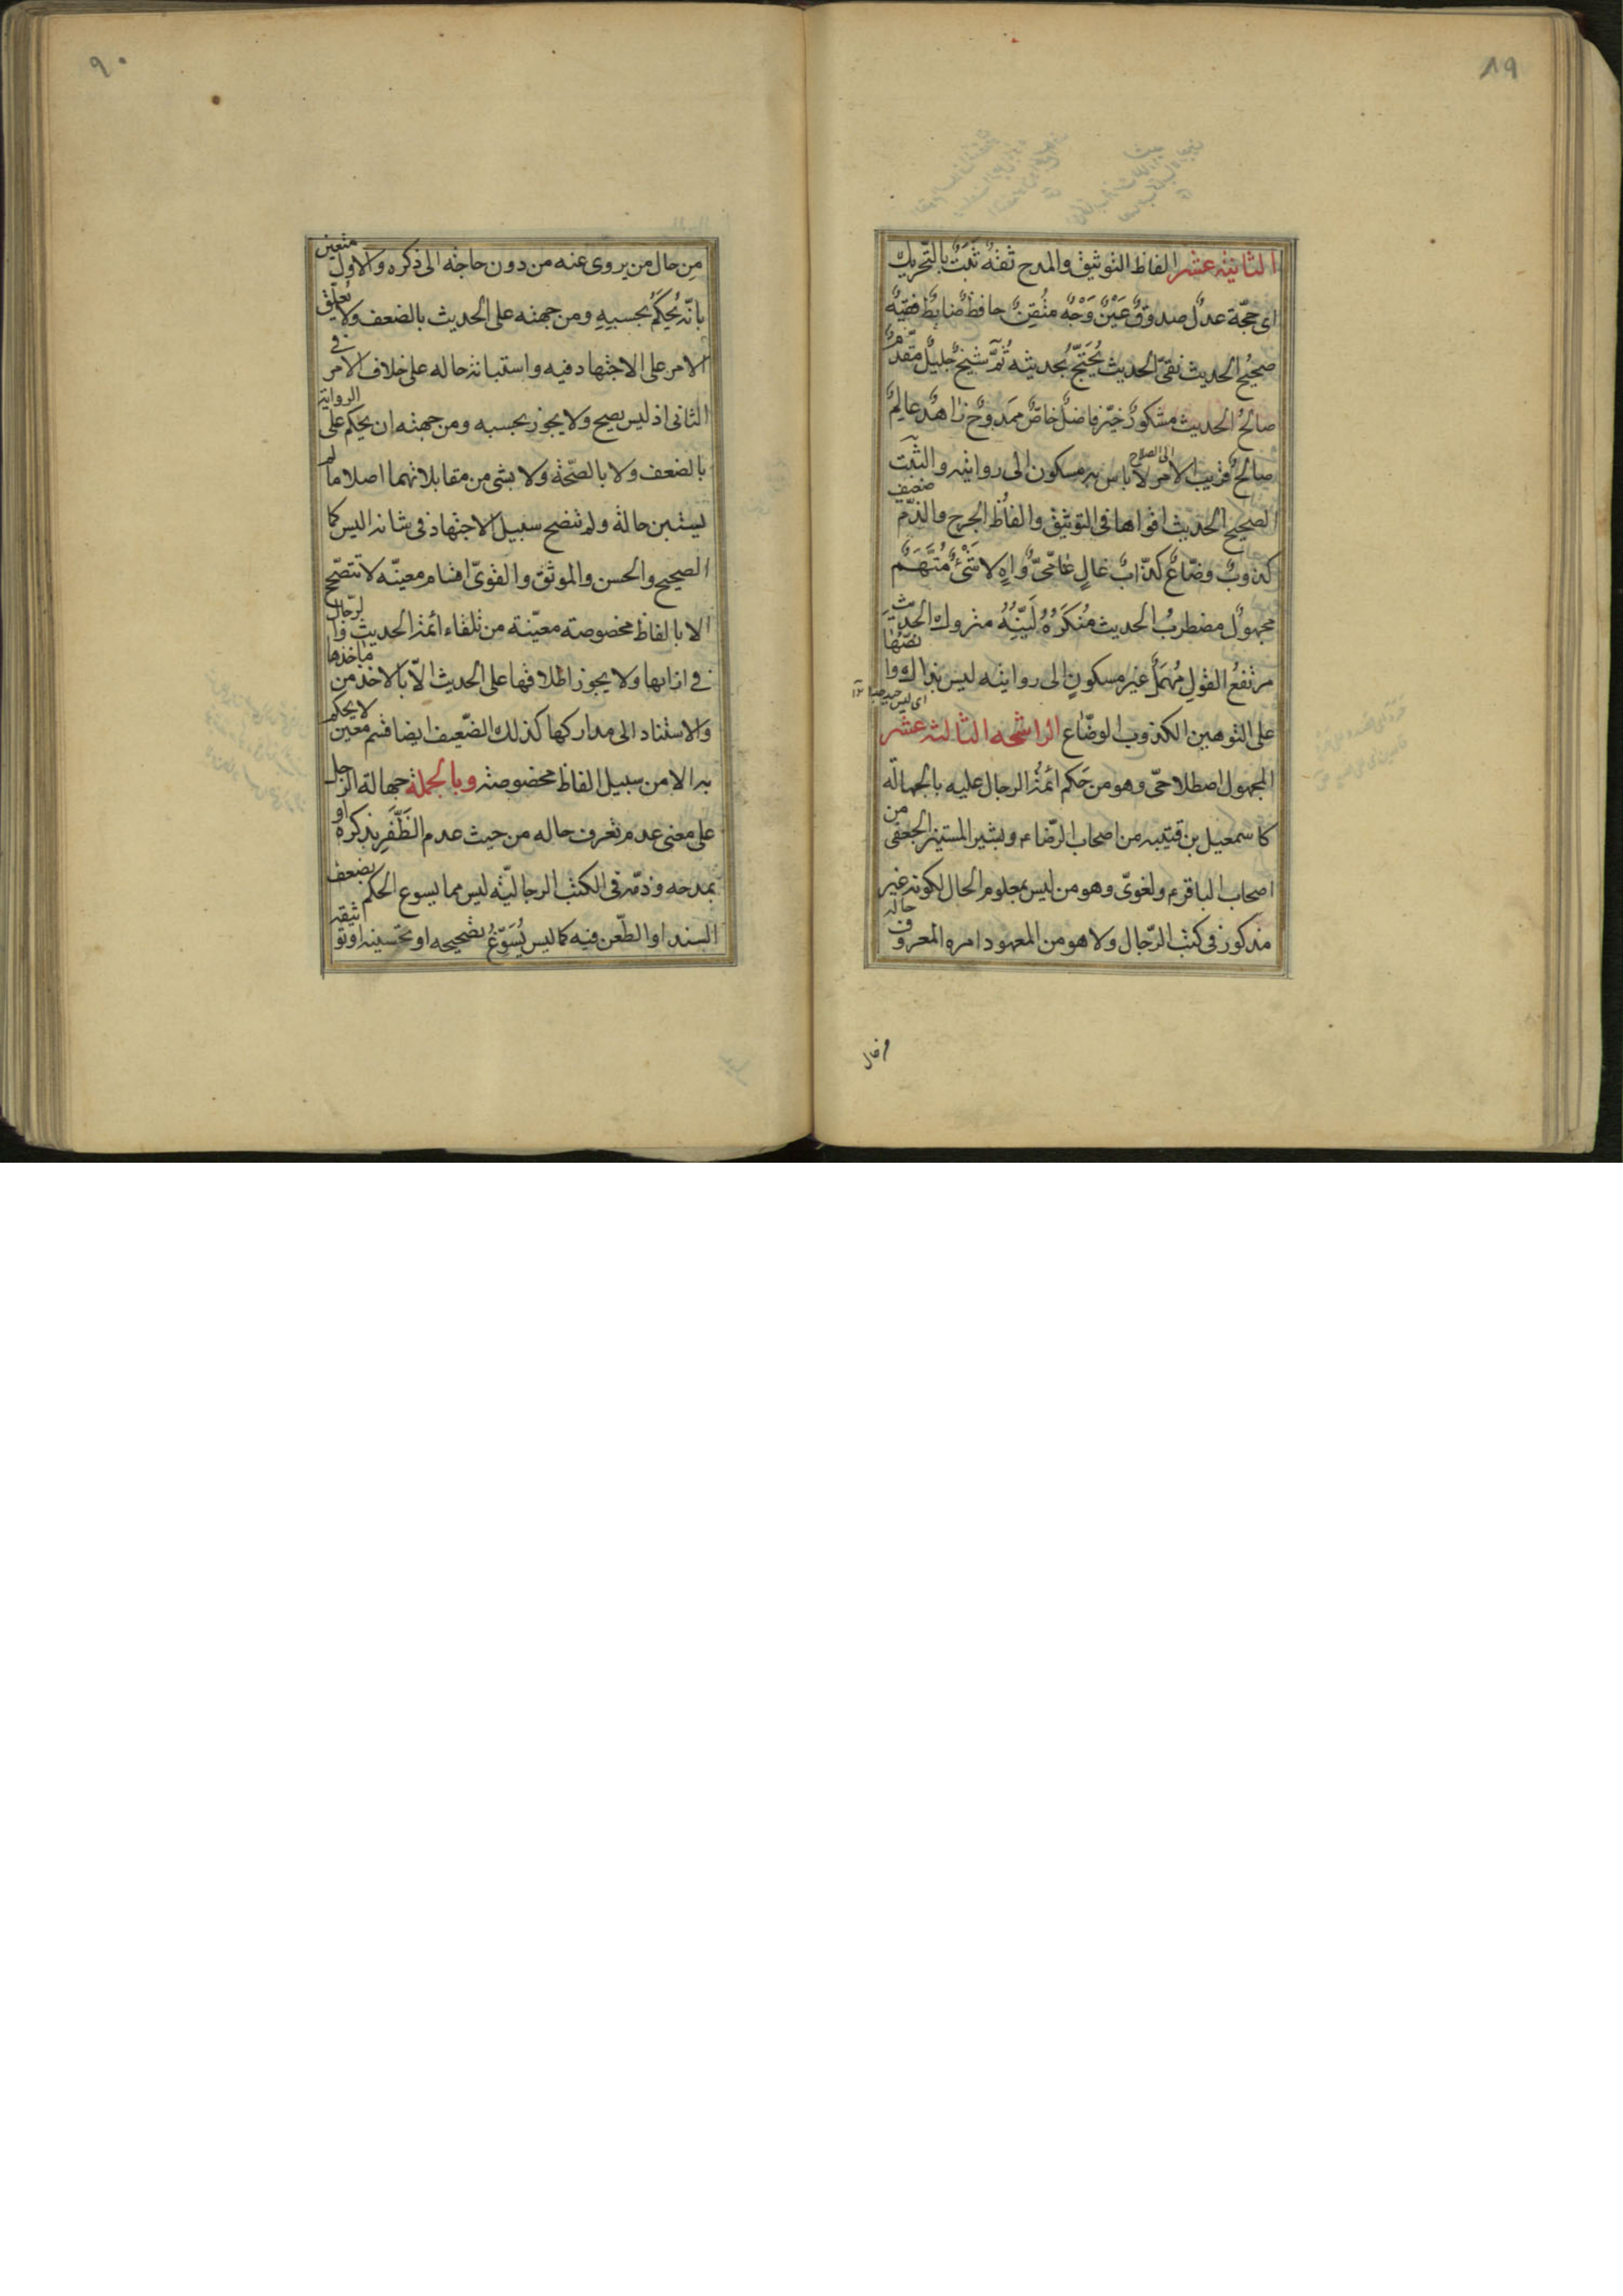 ٨٩
الثانية عشر الفاظ التوثيق والمدح ثقة ثَبَتٌ بالتّحريك
اى حجّة عدلٌ صدوقٌ عَيْنٌ وَجْهٌ مُتْقِنٌ حافظٌ ضابطٌ فقيهٌ
صحيحُ الحديث نقىّ الحديث يُحْتَجّ بحديثه ثمَّ شيخٌ جليلٌ مقدّمٌ
صالحُ الحديث مشكورٌ خيّر فاضلٌ خاصٌّ ممدوحٌ زاهدٌ عالمٌ
صالحٌ قريب الامر لاباس به مسكون الى روايته والثَّبَت
الى الصلاح
الصحيح الحديث اقواها فى التوثيق والفاظ الجرح والذّم ضعيف
كذوبٌ وضّاعٌ كذّابٌ غالٍ عامّىٌّ واهٍ لا شَىْءٌ مُتَّهَمٌ
مجهولٌ مضطربُ الحديث مُنكَرُهُ لَيّنُهُ متروك الحديث
مرتفعُ القول مُهمَلٌ غير مسكونٍ الى روايته ليس بذاك وانصّها
على التوهين الكذوب الوضّاع الراشحه الثالثة عشر
المجهول اصطلاحىّ وهو من حَكم ائمّة الرجال عليه بالجهالة
كاسمعيل بن قتيبه من اصحاب الرّضا ء وبشير المستنير الجعفى من
اصحاب الباقر ء ولغوىّ وهو من ليس بمعلوم الحال لكونه غير
مذكور فى كتب الرّجال ولا هو من المعهود امره المعروف حاله
٩٠
مِن حال من يروى عنه من دون حاجة الى ذكره والاول متعيّن
بانّه يُحكَمُ بحسبهِ ومن جهته على الحديث بالضعف ولا يُعلّق
الامر على الاجتهاد فيه واستبانة حاله على خلاف الامر فى
الثانى اذ ليس يصح ولا يجوز بحسبه ومن جهته ان يحكم على الرواية
بالضعف ولا بالصّحّة ولا بشئ من مقابلاتهما اصلا ما لم
يستبن حاله ولم تتضح سبيل الاجتهاد فى شانه اليس كما
الصحيح والحسن والموثّق والقوىّ اقسام معيّنه لا تتصحّح
الا بالفاظ مخصوصة معيّنة من تلقاء ائمة الحديث والرّجال
فى ازائها ولا يجوز اطلاقها على الحديث الاّ بالاخذ من مآخذها
والاستناد الى مداركها كذلك الضّعيف ايضا قسم معين لا يحكم
به الا من سبيل الفاظ مخصوصة وبالجملة جهالة الرجل
على معنى عدم تعرف حاله من حيث عدم الظَّفَر بذكره او
بمدحه وذمّه فى الكتب الرجاليّة ليس مما يسوع الحكم بضعف
السند او الطّعن فيه كما ليس يُسَوّغُ تصحيحه او تحسينه او توثيقه